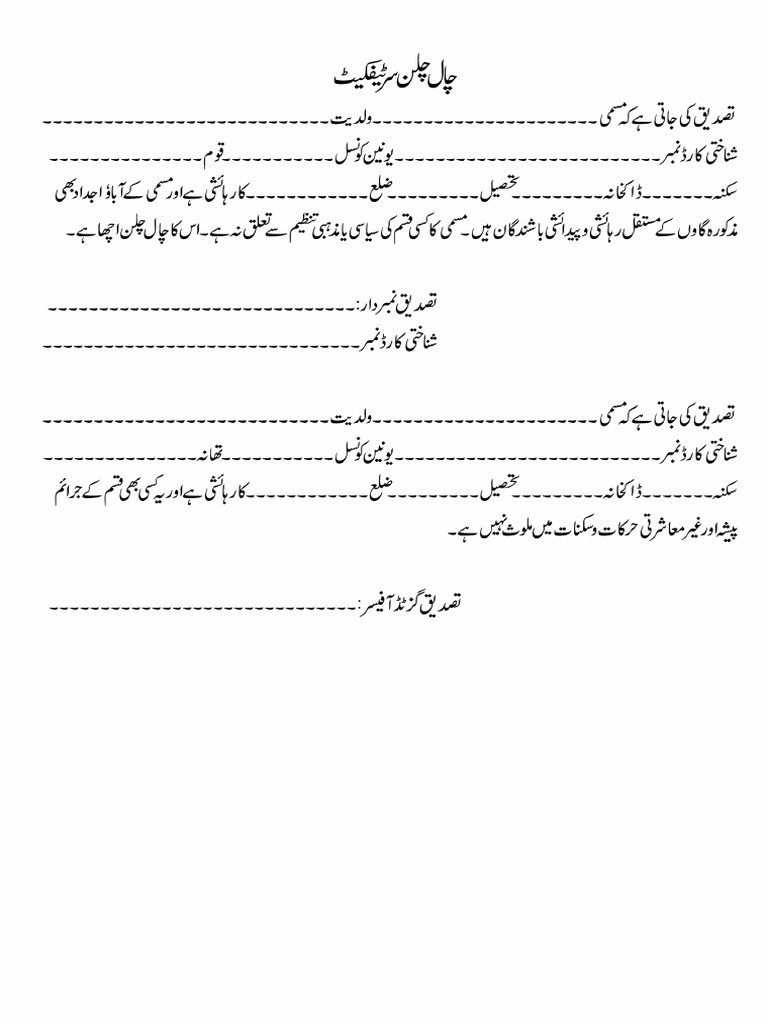 چال چلن سرٹیفکیٹ
تصدیق کی جاتی ہے کہ مسمی ---------------------- ولدیت ----------------------------
شناختی کارڈ نمبر -------------------------- یونین کونسل ----------- قوم ---------------
سکنہ ------- ڈاکخانہ --------- تحصیل --------- ضلع ------------ کا رہائشی ہے اور مسمی کے آباؤ اجداد بھی
مذکورہ گاوں کے مستقل رہائشی و پیدائشی باشندگان ہیں ۔ مسمی کا کسی قسم کی سیاسی یا مذہبی تنظیم سے تعلق نہ ہے۔ اس کا چال چلن اچھا ہے۔
تصدیق نمبردار: ------------------------------
شناختی کارڈ نمبر -------------------------------
تصدیق کی جاتی ہے کہ مسمی ---------------------- ولدیت ----------------------------
شناختی کارڈ نمبر -------------------------- یونین کونسل ----------- تھانہ ---------------
سکنہ ------- ڈاکخانہ --------- تحصیل --------- ضلع ------------ کا رہائشی ہے اور یہ کسی بھی قسم کے جرائم
پیشہ اور غیر معاشرتی حرکات و سکنات میں ملوث نہیں ہے۔
تصدیق گزٹڈ آفیسر: ------------------------------